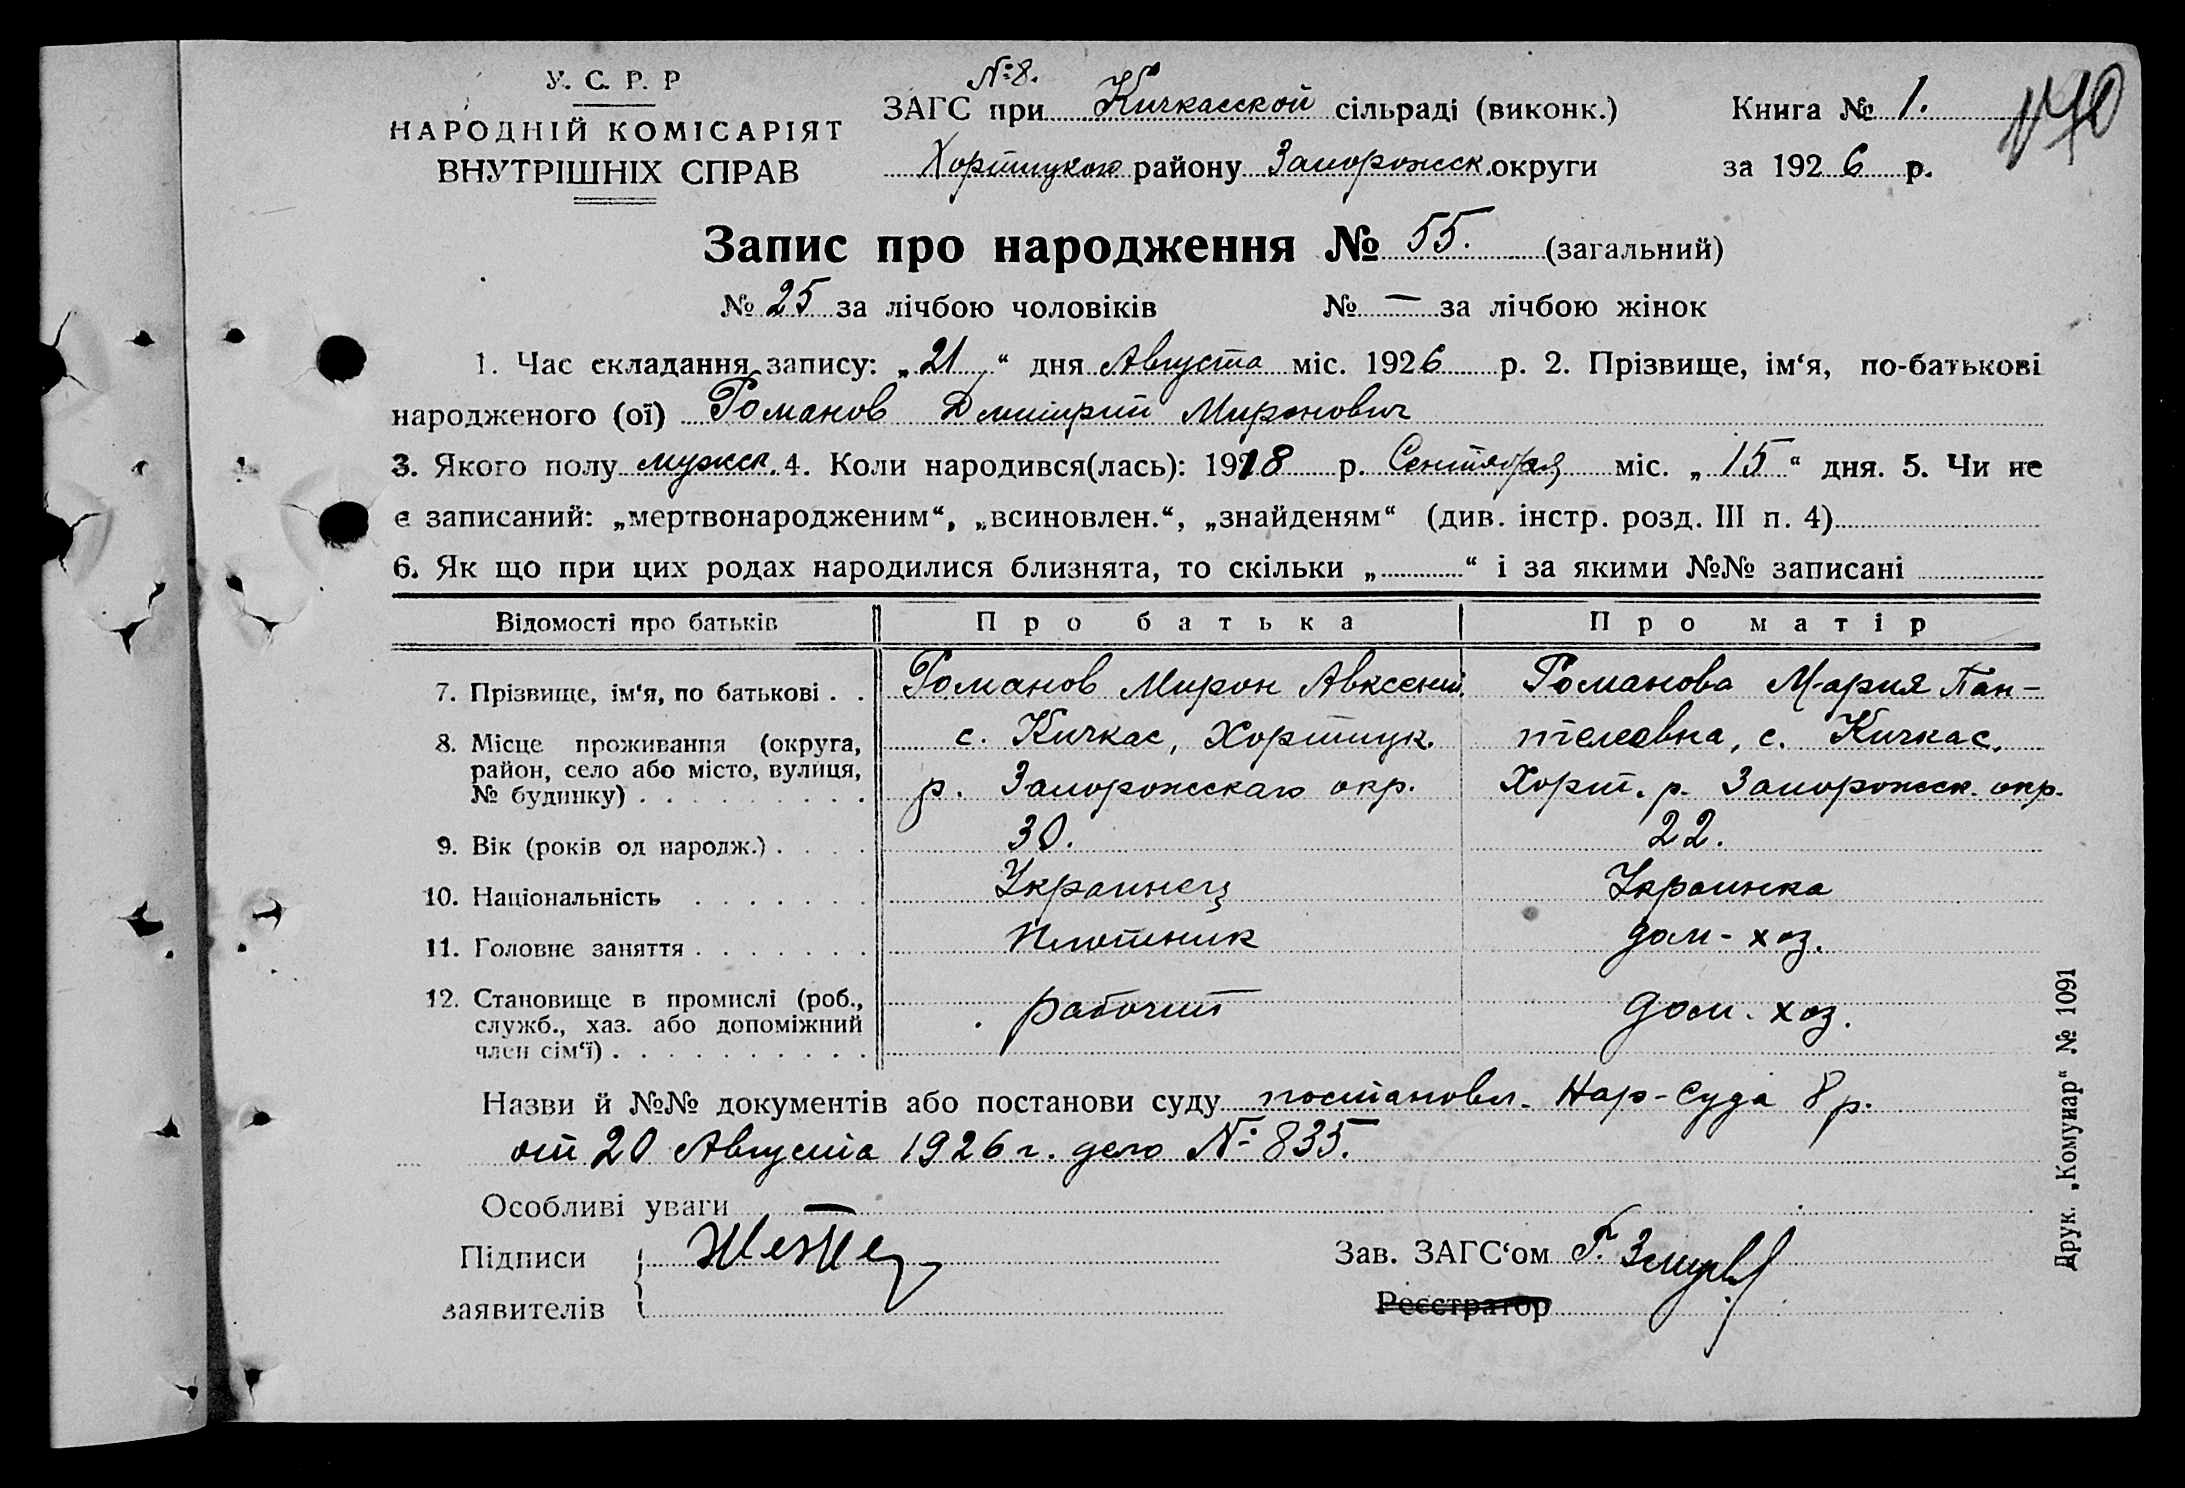 У. С. Р. Р
НАРОДНІЙ КОМІСАРІЯТ
ВНУТРІШНІХ СПРАВ
№ 8.
ЗАГС при Кичкасской сільраді (виконк.)
Хортицкого району Запорожск. округи
Книга № 1.
за 1926 р.
Запис про народження № 55. (загальний)
№ 25 за лічбою чоловіків № — за лічбою жінок
1. Час складання запису: „21“ дня Августа міс. 1926 р. 2. Прізвище, ім‘я, по-батькові
народженого (ої) Романов Дмитрий Миронович
3. Якого полу мужск. 4. Коли народився(лась): 1918 р. Сентября міс. „15“ дня. 5. Чи не
є записаний: „мертвонародженим“, „всиновлен.“, „знайденям“ (див. інстр. розд. III п. 4)
6. Як що при цих родах народилися близнята, то скільки „ “ і за якими №№ записані
Відомості про батьків Про батька Про матір
7. Прізвище, ім‘я, по батькові . . Романов Мирон Авксений. Романова Мария Пан-
8. Місце проживання (округа, с. Кичкас, Хортицк. телеевна, с. Кичкас,
район, село або місто, вулиця,
№ будинку) . р. Запорожскаго окр. Хорт. р. Запорожск. окр.
9. Вік (років од народж.) . 30. 22.
10. Національність Украинец Украинка
11. Головне заняття . Плотник дом-хоз.
12. Становище в промислі (роб., рабочий дом. хоз.
служб., хаз. або допоміжний
член сім‘ї) .
Назви й №№ документів або постанови суду постановл. Нар-Суда 8 р.
от 20 Августа 1926 г. дело № 835.
Особливі уваги —
Підписи
заявителів
Зав. ЗАГС‘ом Г.
Реєстратор
Друк. „Комунар“ № 1091